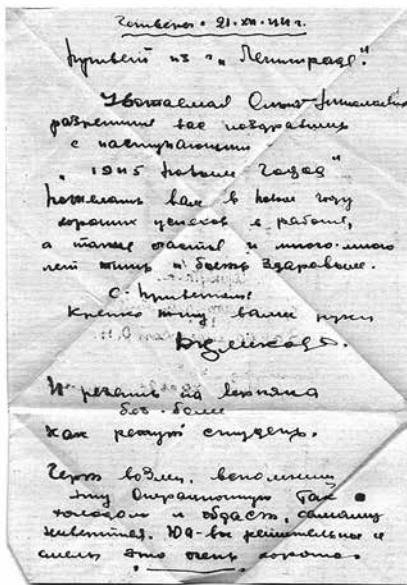 21.XII.44 г.
Привет из г. "Ленинграда".
Уважаемая Ольга Николаевна
разрешите вас поздравить
с наступающим
"1945 новым годом"
Пожелать вам в новом году
хороших успехов в работе,
а также счастья и много-много
лет жить и быть здоровым.
С приветом
Крепко жму вашу руку
И резать на
без боли
как режут студень.
Черт возьми, вспомнишь
эту операционную так
холодом и обдаст, самому
Юд-вы решительные и
смелы это очень хорошо.